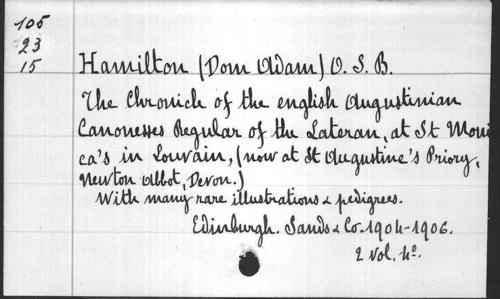 105
23
15
Hamilton (Dom Adam) O. S. B.
The Chronicle of the english Augustinian
Canonesses Regular of the Lateran, at St Moni
ca's in Louvain, (now at St Augustine's Priory,
Newton Abbot, Devon.)
With many rare illustrations & pedigrees.
Edinburgh. Sands & Co. 1904-1906.
2 vol. 4º.